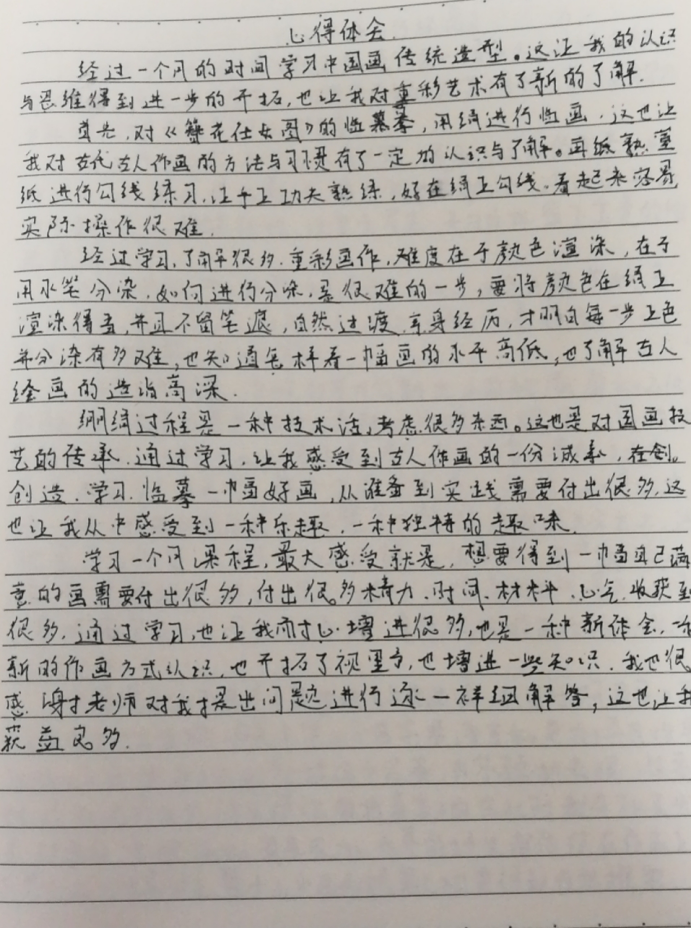 心得体会
经过一个月的时间学习中国画传统造型。这让我的认识
与思维得到进一步的开拓,也让我对重彩艺术有了新的了解.
首先,对《簪花仕女图》的临摹,用绢进行临画.这也让
我对古代古人作画的方法与习惯有了一定的认识与了解。再纸熟宣
纸进行勾线练习,让手上功夫熟练,好在绢上勾线.看起来容易
实际操作很难.
经过学习,了解很多.重彩画作,难度在于颜色渲染,在于
用水笔分染,如何进行分染,是很难的一步,要将颜色在绢上
渲染得,并且不留笔痕,自然过渡.亲身经历,才明白每一步上色
并分染有多难,也知道怎样看一幅画的水平高低,也了解古人
绘画的造诣高深.
绷绢过程是一种技术活,考虑很多东西。这也是对国画技
艺的传承.通过学习,让我感受到古人作画的一份诚,在创
创造.学习.临摹一幅好画,从准备到实践需要付出很多,这
也让我从中感受到一种乐趣,一种独特的趣味.
学习一个月课程,最大感受就是,想要得到一幅自己满
意的画需要付出很多,付出很多精力.时间.材料.心气.收获到
很多.通过学习,也让我耐心增进很多,也是一种新体会.
新的作画方式认识,也开拓了视野,也增进一些知识.我也很
感谢老师对我提出问题进行逐一详细解答,这也让我
获益良多.